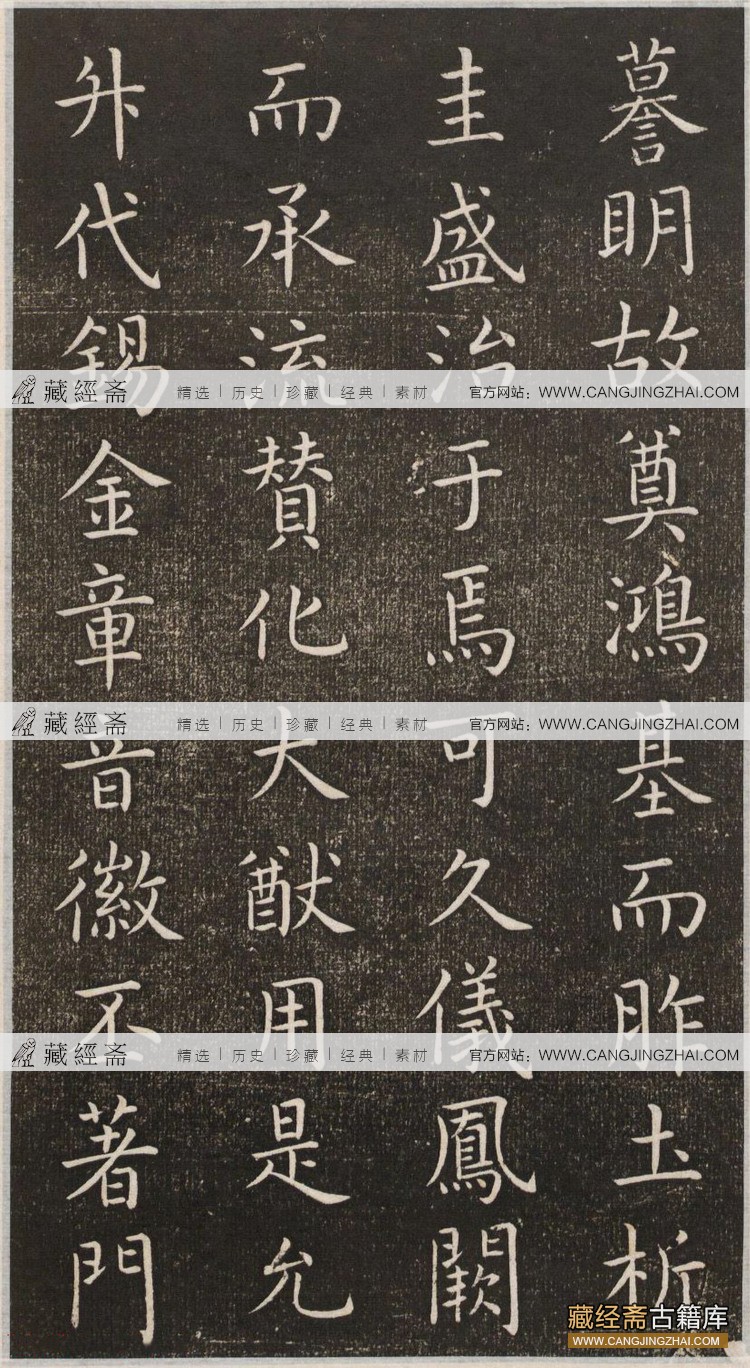 謩眀故奠鴻基而胙圡析
圭盛治于焉可久儀鳳闕
而承流賛化大猷用是允
升代錫金章音徽丕著門
藏經斋 精选 | 历史 | 珍藏 | 经典 | 素材 官方网站：WWW.CANGJINGZHAI.COM
藏經斋 精选 | 历史 | 珍藏 | 经典 | 素材 官方网站：WWW.CANGJINGZHAI.COM
藏經斋 精选 | 历史 | 珍藏 | 经典 | 素材 官方网站：WWW.CANGJINGZHAI.COM
藏经斋古籍库
WWW.CANGJINGZHAI.COM